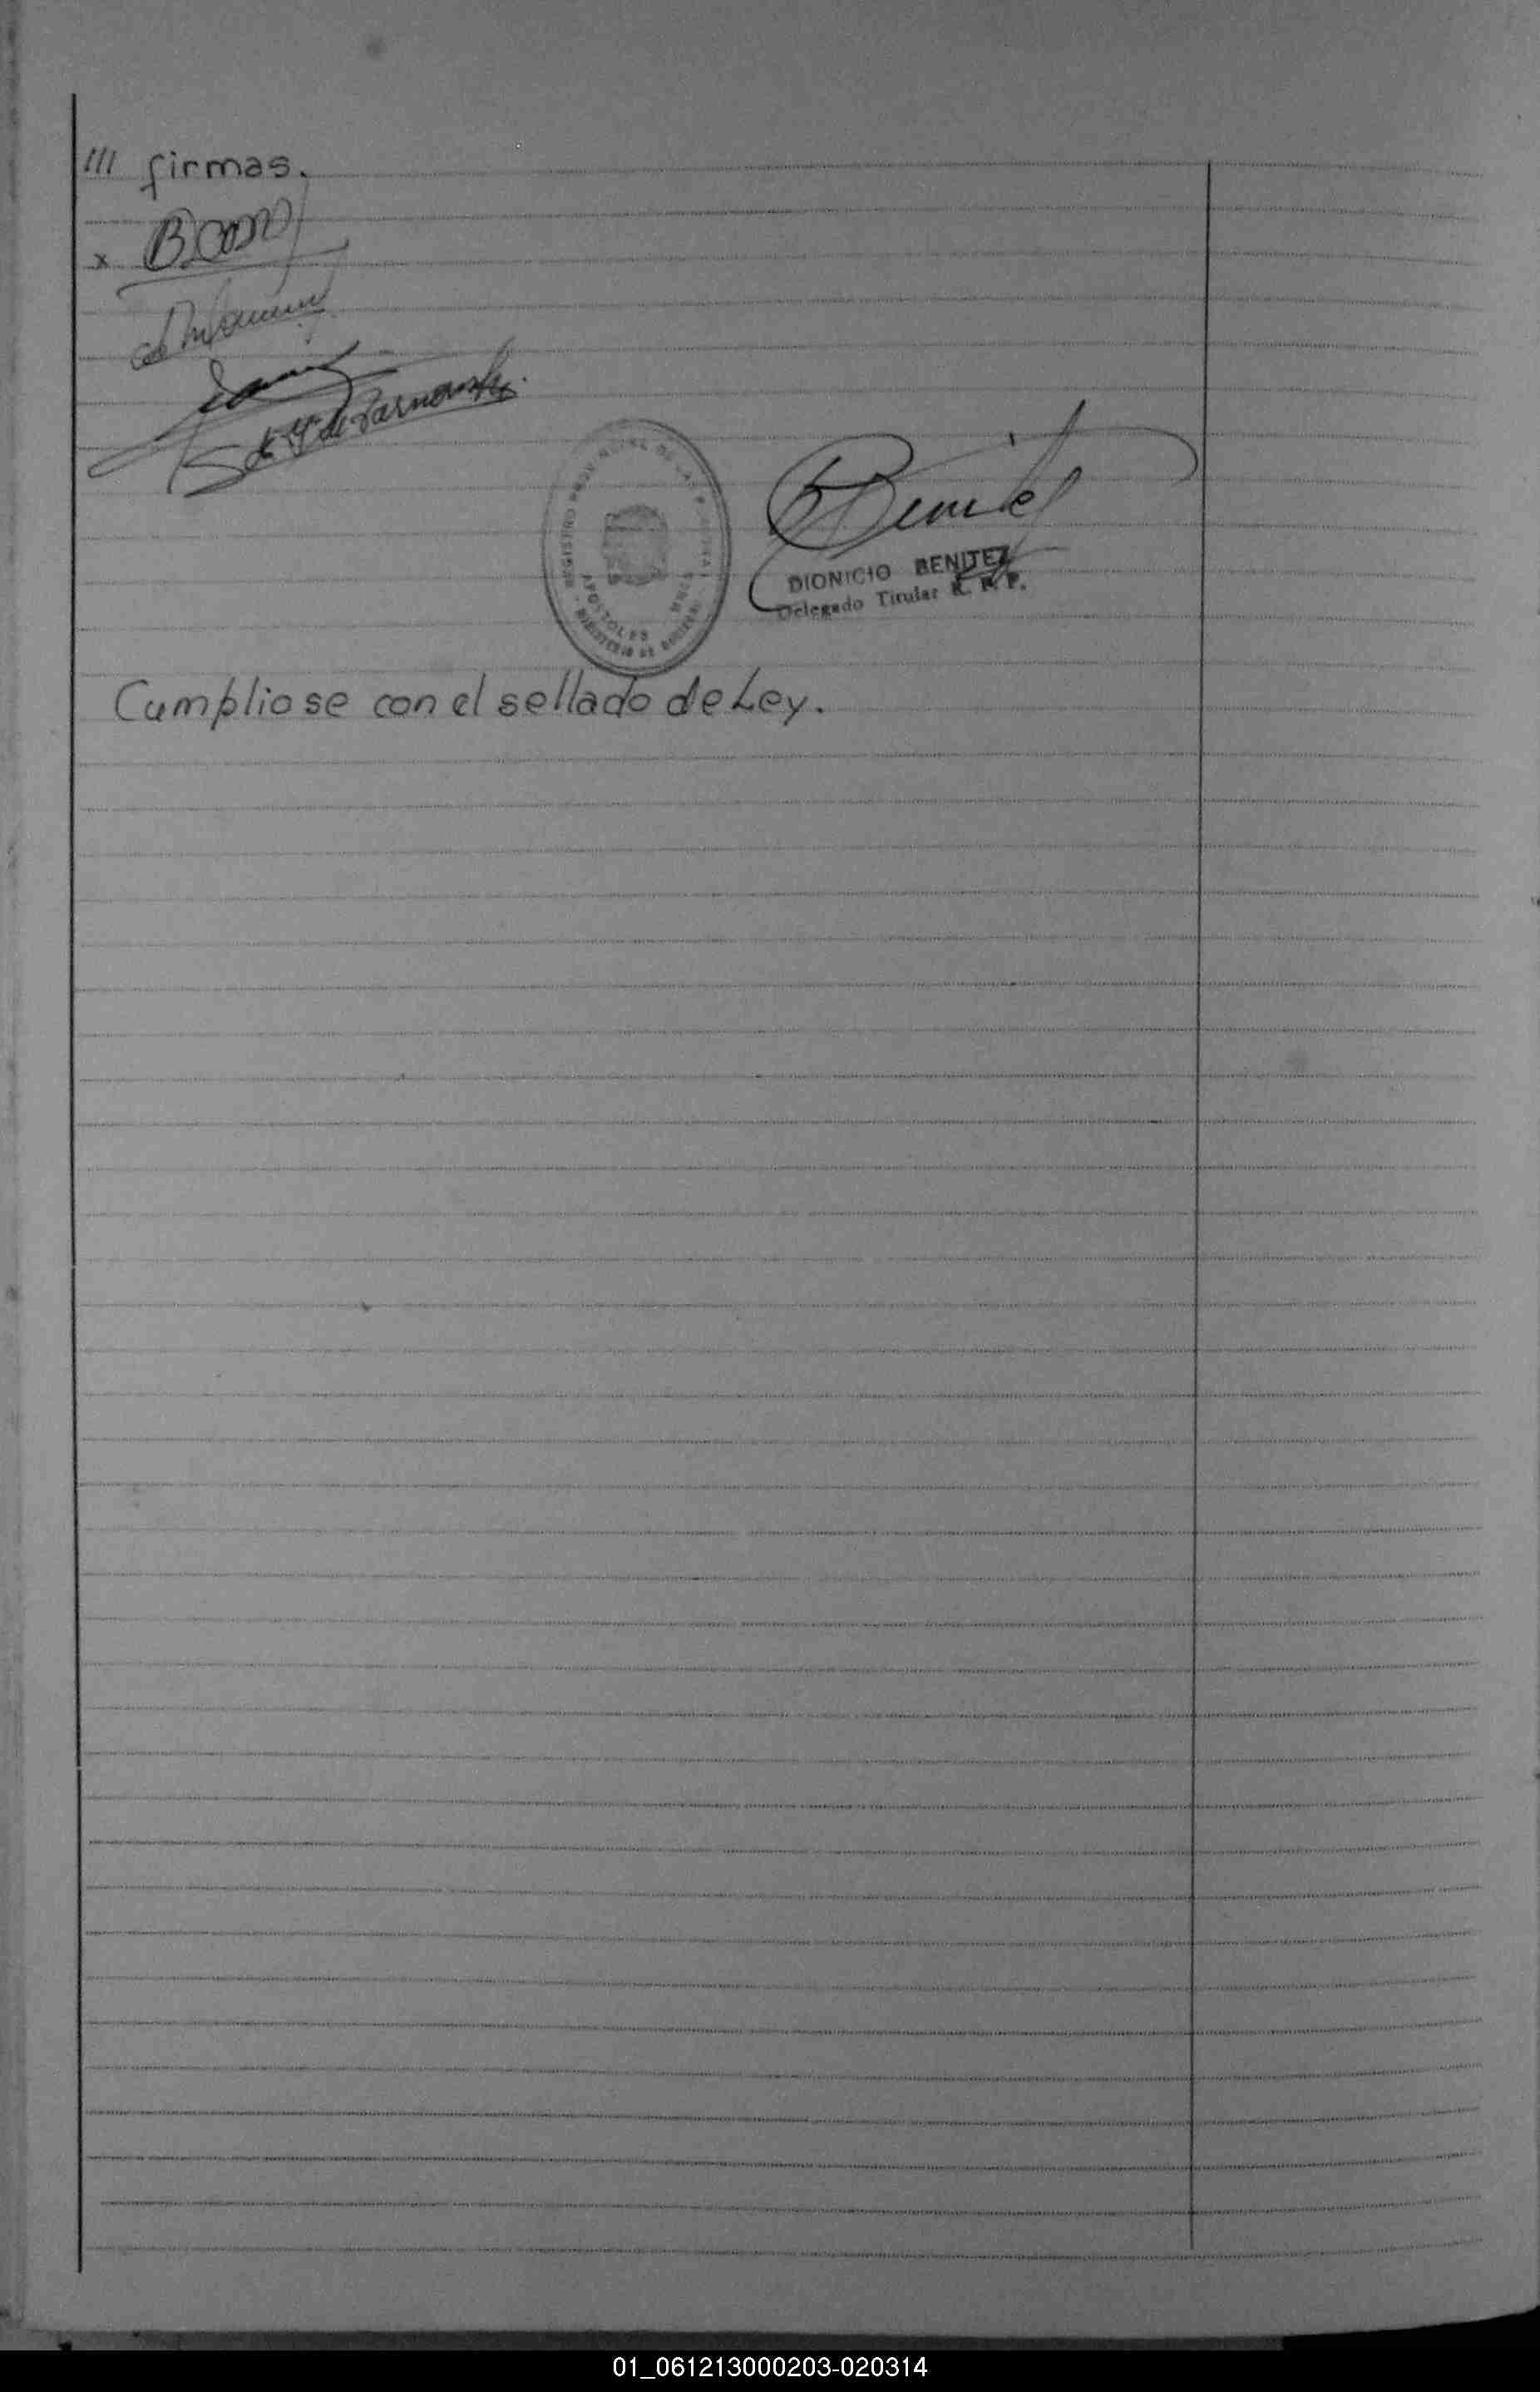 /// firmas.
x
REGISTRO PROVINCIAL DE LAS PERSONAS
APOSTOLES MNES
MINISTERIO DE GOBIERNO
Benitez
DIONICIO BENITEZ
Delegado Titular R. P. P.
Cumpliose con el sellado de Ley.
01_061213000203-020314